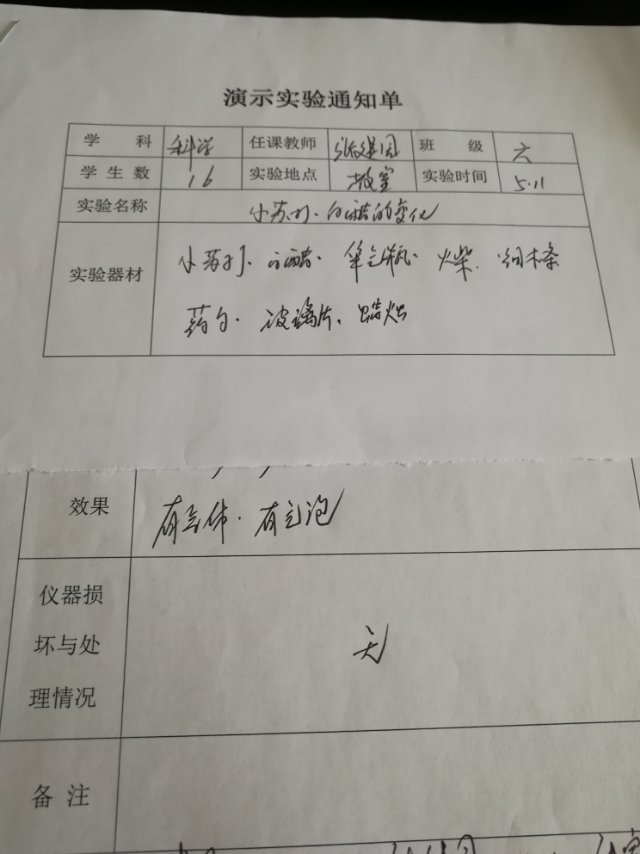 演示实验通知单
学 科 科学 任课教师 班 级 六
学生数 16 实验地点 教室 实验时间 5.11
实验名称 小苏打、白醋的变化
实验器材 小苏打、白醋、集气瓶、火柴、细木条
药勺、玻璃片、蜡烛
效果 有气体、有气泡
仪器损
坏与处 无
理情况
备 注